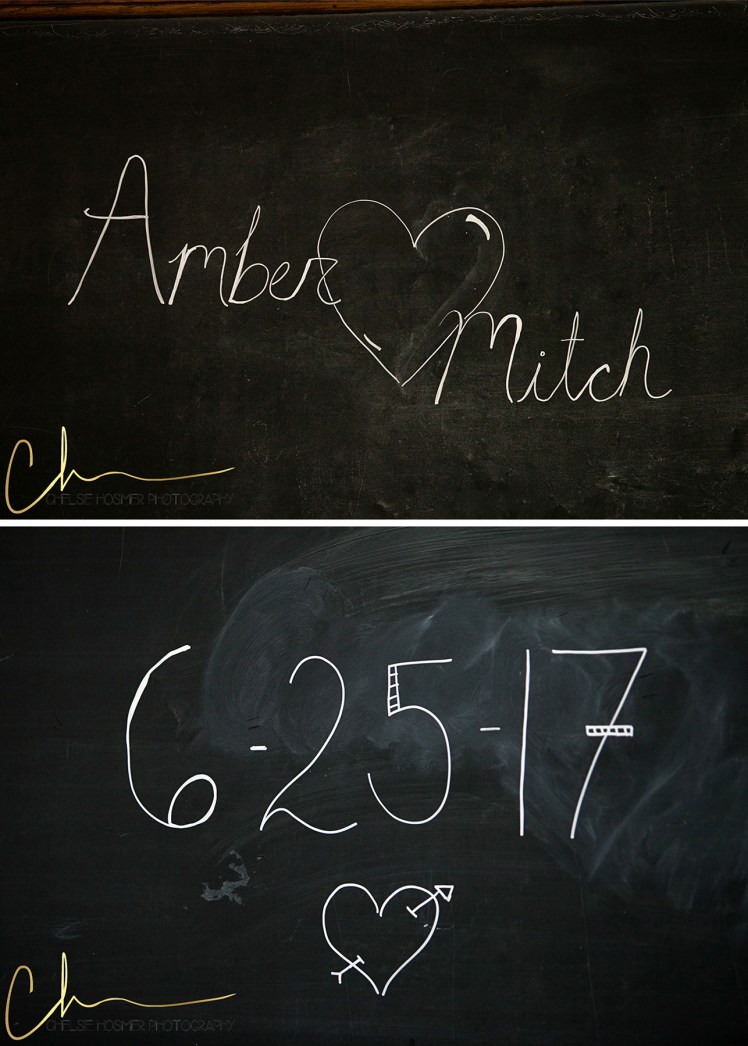 Amber
Mitch
Ch
CHELSIE HOSMER PHOTOGRAPHY
6-25-17
Ch
CHELSIE HOSMER PHOTOGRAPHY